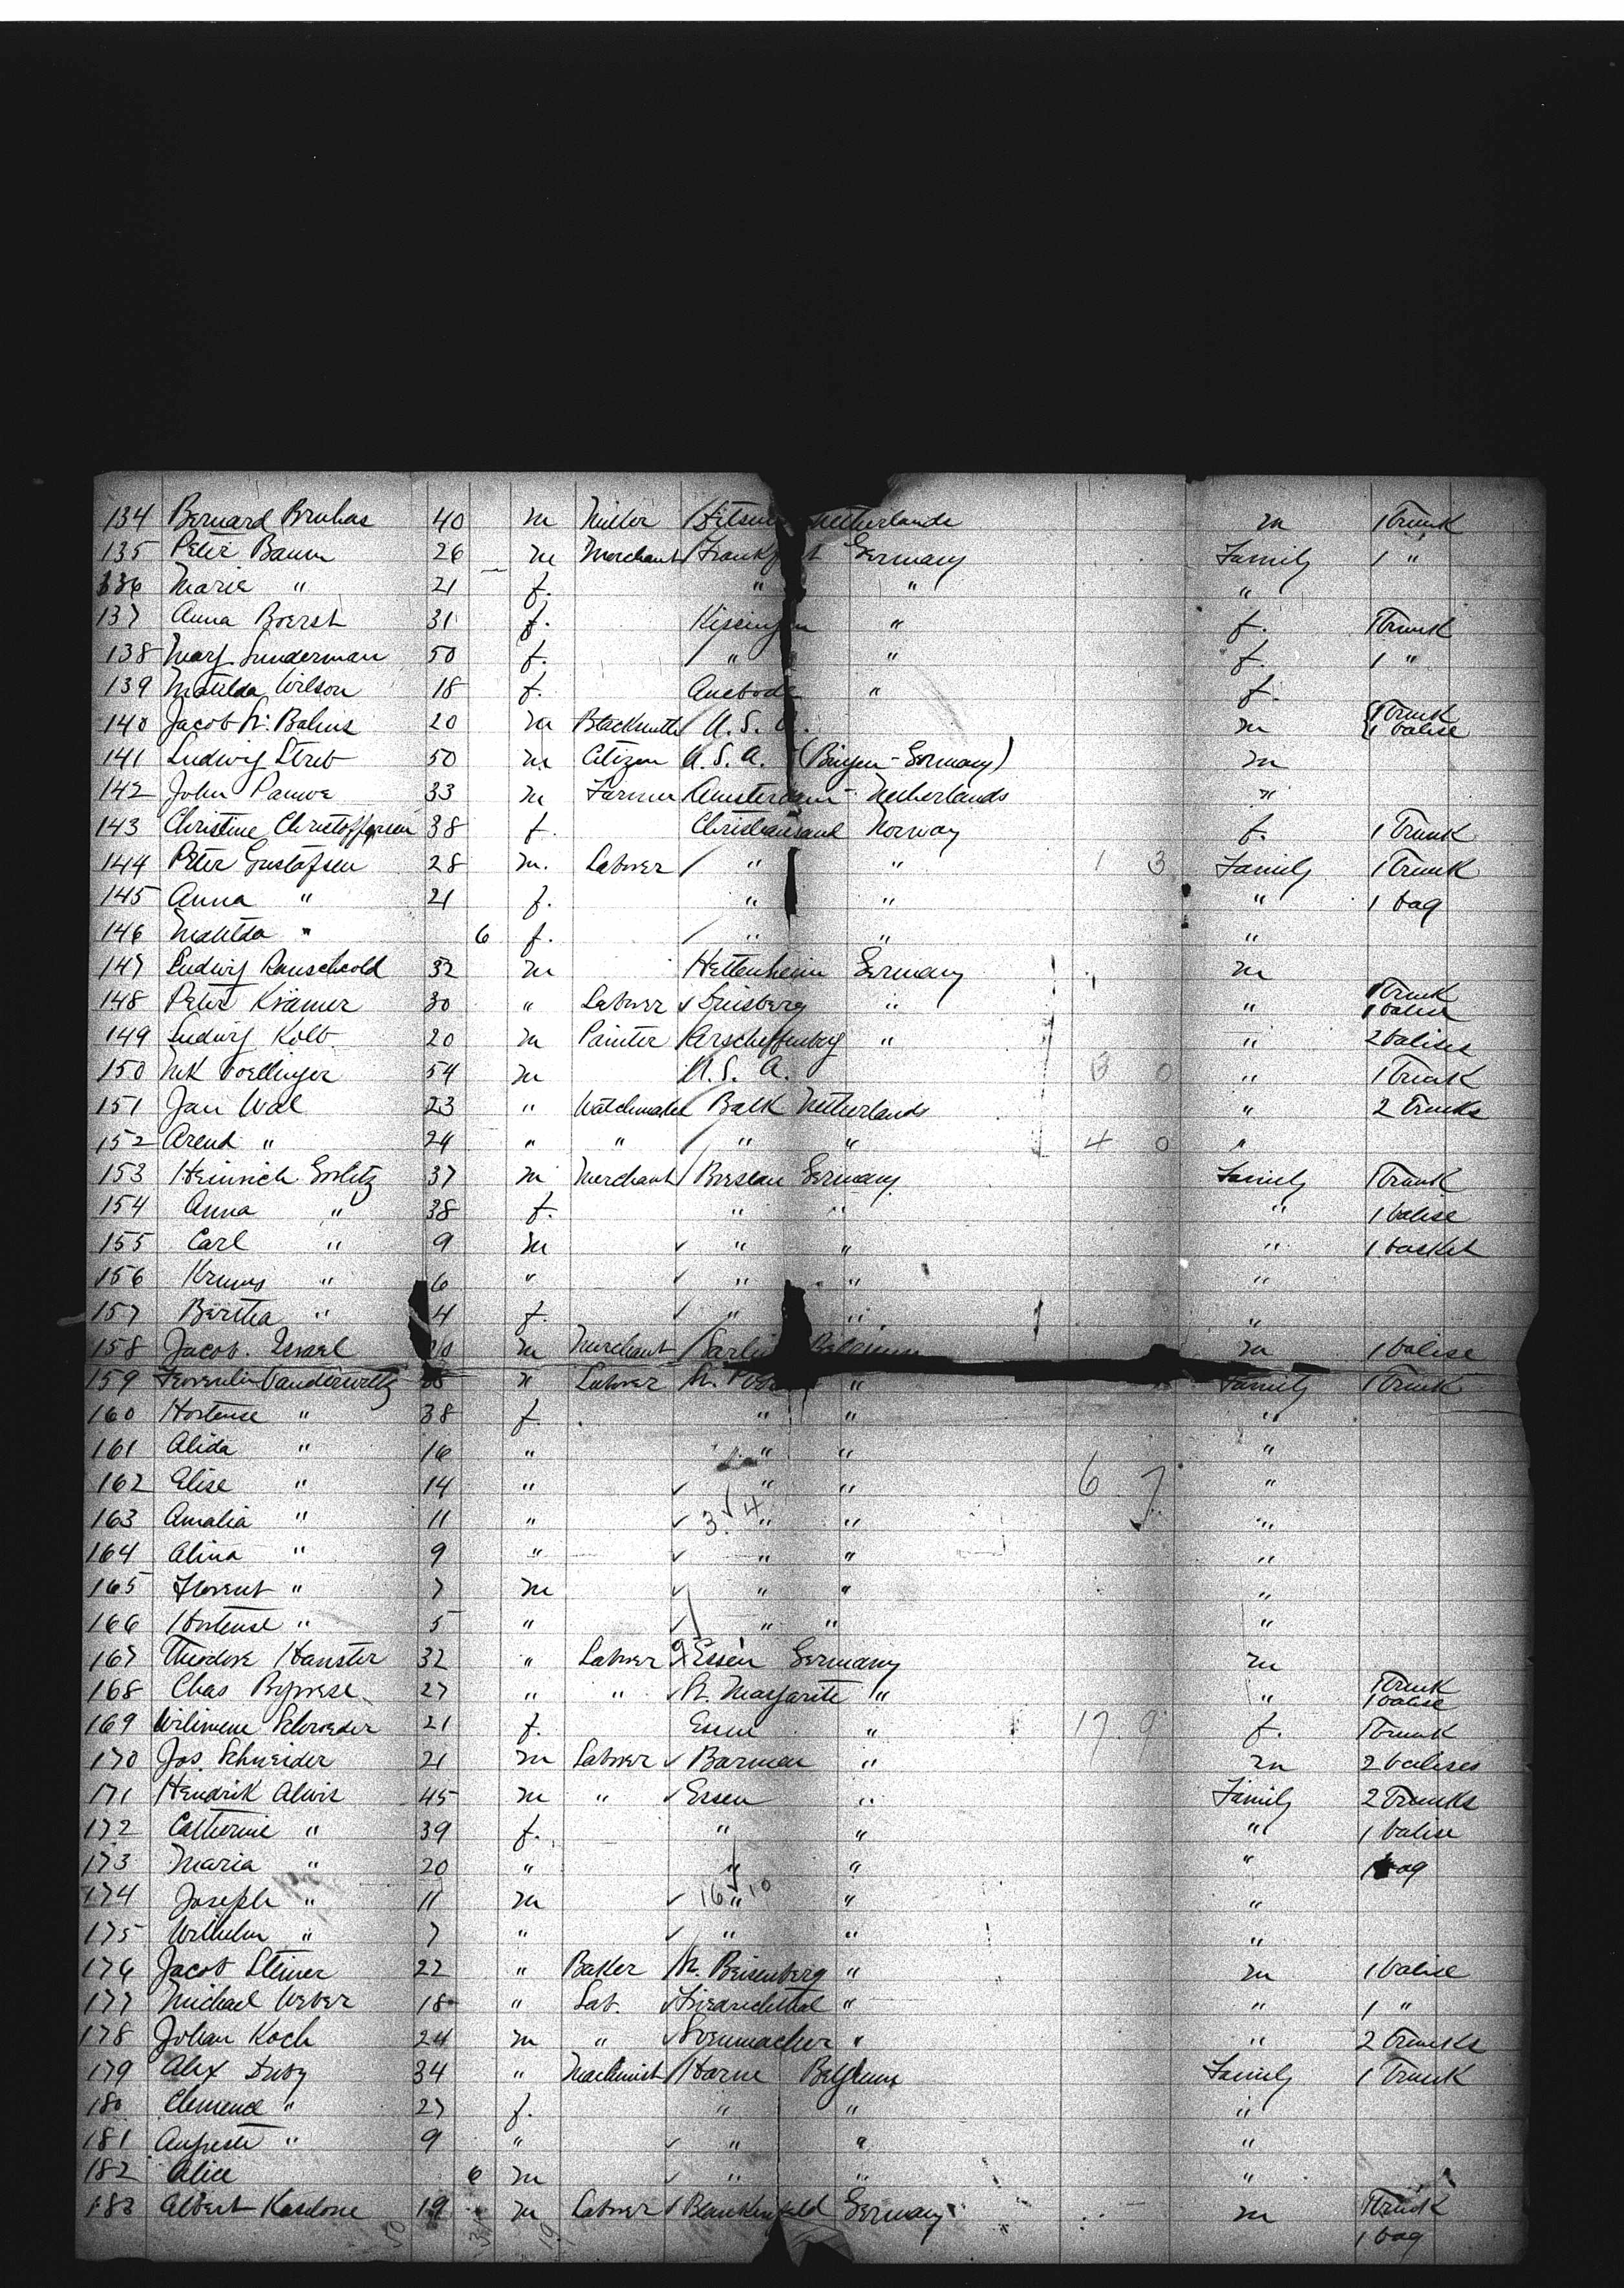 134 Bernard Bruhas 40 m Miller Netherlands m 1 Trunk
135 Peter Baum 26 m Merchant Frankfurt Germany Family 1 "
136 Marie " 21 f. " " "
137 Anna Boerst 31 f. Kissingen " f. 1 Trunk
138 Mary Sunderman 50 f. " " f. 1 "
139 Matilda Wilson 18 f. " f.
140 Jacob Balius 20 m Blacksmith U. S. A. m 1 Trunk 1 valise
141 Ludwig Streb 50 m Citizen U. S. A. (Bingen - Germany) m
142 John Pauwe 33 m Farmer Amsterdam Netherlands "
143 Christine Christoffersen 38 f. Christiansand Norway f. 1 Trunk
144 Peter Gustafsen 28 m. Laborer " " 1 3 Family 1 Trunk
145 Anna " 21 f. " " " 1 bag
146 Matilda " 6 f. " " "
147 Ludwig Rauschcold 32 m Hettenheim Germany m
148 Peter Krämer 30 " Laborer " " 1 Trunk 1 valise
149 Ludwig Kolb 20 m Painter Arscheffenberg " " 2 valises
150 54 m U. S. A. 3 0 " 1 Trunk
151 Jan Wal 23 " Watchmaker Balk Netherlands " 2 Trunks
152 Arend " 24 " " " " 4 0 "
153 Heinrich Gorlitz 37 m Merchant Breslau Germany Family 1 Trunk
154 Anna " 38 f. " " " 1 valise
155 Carl " 9 m " " " 1 basket
156 " 6 " " " "
157 Bertha " 4 f. " " "
158 Jacob Israel m Merchant Belgium m 1 valise
159 Vanderwiltz " Laborer " Family 1 Trunk
160 Hortense " 38 f. " " "
161 Alida " 16 " " " "
162 Elise " 14 " " " 6 7 "
163 Amalia " 11 " 3 4 " " "
164 Alina " 9 " " " "
165 Florent " 7 m " " "
166 Hortense " 5 " " " "
167 Theodore Hanster 32 " Laborer Essen Germany m
168 Chas 27 " " St. Margarite " " 1 Trunk 1 valise
169 Wilimene Schroeder 21 f. Essen " 17 9 f. 1 Trunk
170 Jos. Schneider 21 m Laborer Barmen " m 2 valises
171 Hendrik Alwis 45 m " Essen " Family 2 Trunks
172 Catherine " 39 f. " " " 1 valise
173 Maria " 20 " " " " 1 bag
174 Joseph " 11 m 16 " 10 " "
175 Wilhelm " 7 " " " "
176 Jacob Steiner 22 " Baker St. Beisenberg " m 1 valise
177 Michael Weber 18 " Lab. Friedrichthal " " 1 "
178 Johan Koch 24 m " " " 2 Trunks
179 Alex Duby 34 " Machinist Harne Belgium Family 1 Trunk
180 Clemence " 27 f. " " "
181 Auguste " 9 " " " "
182 Alice 6 m " " "
183 Albert Kardone 19 m Laborer Blankenfeld Germany m 1 Trunk
1 bag